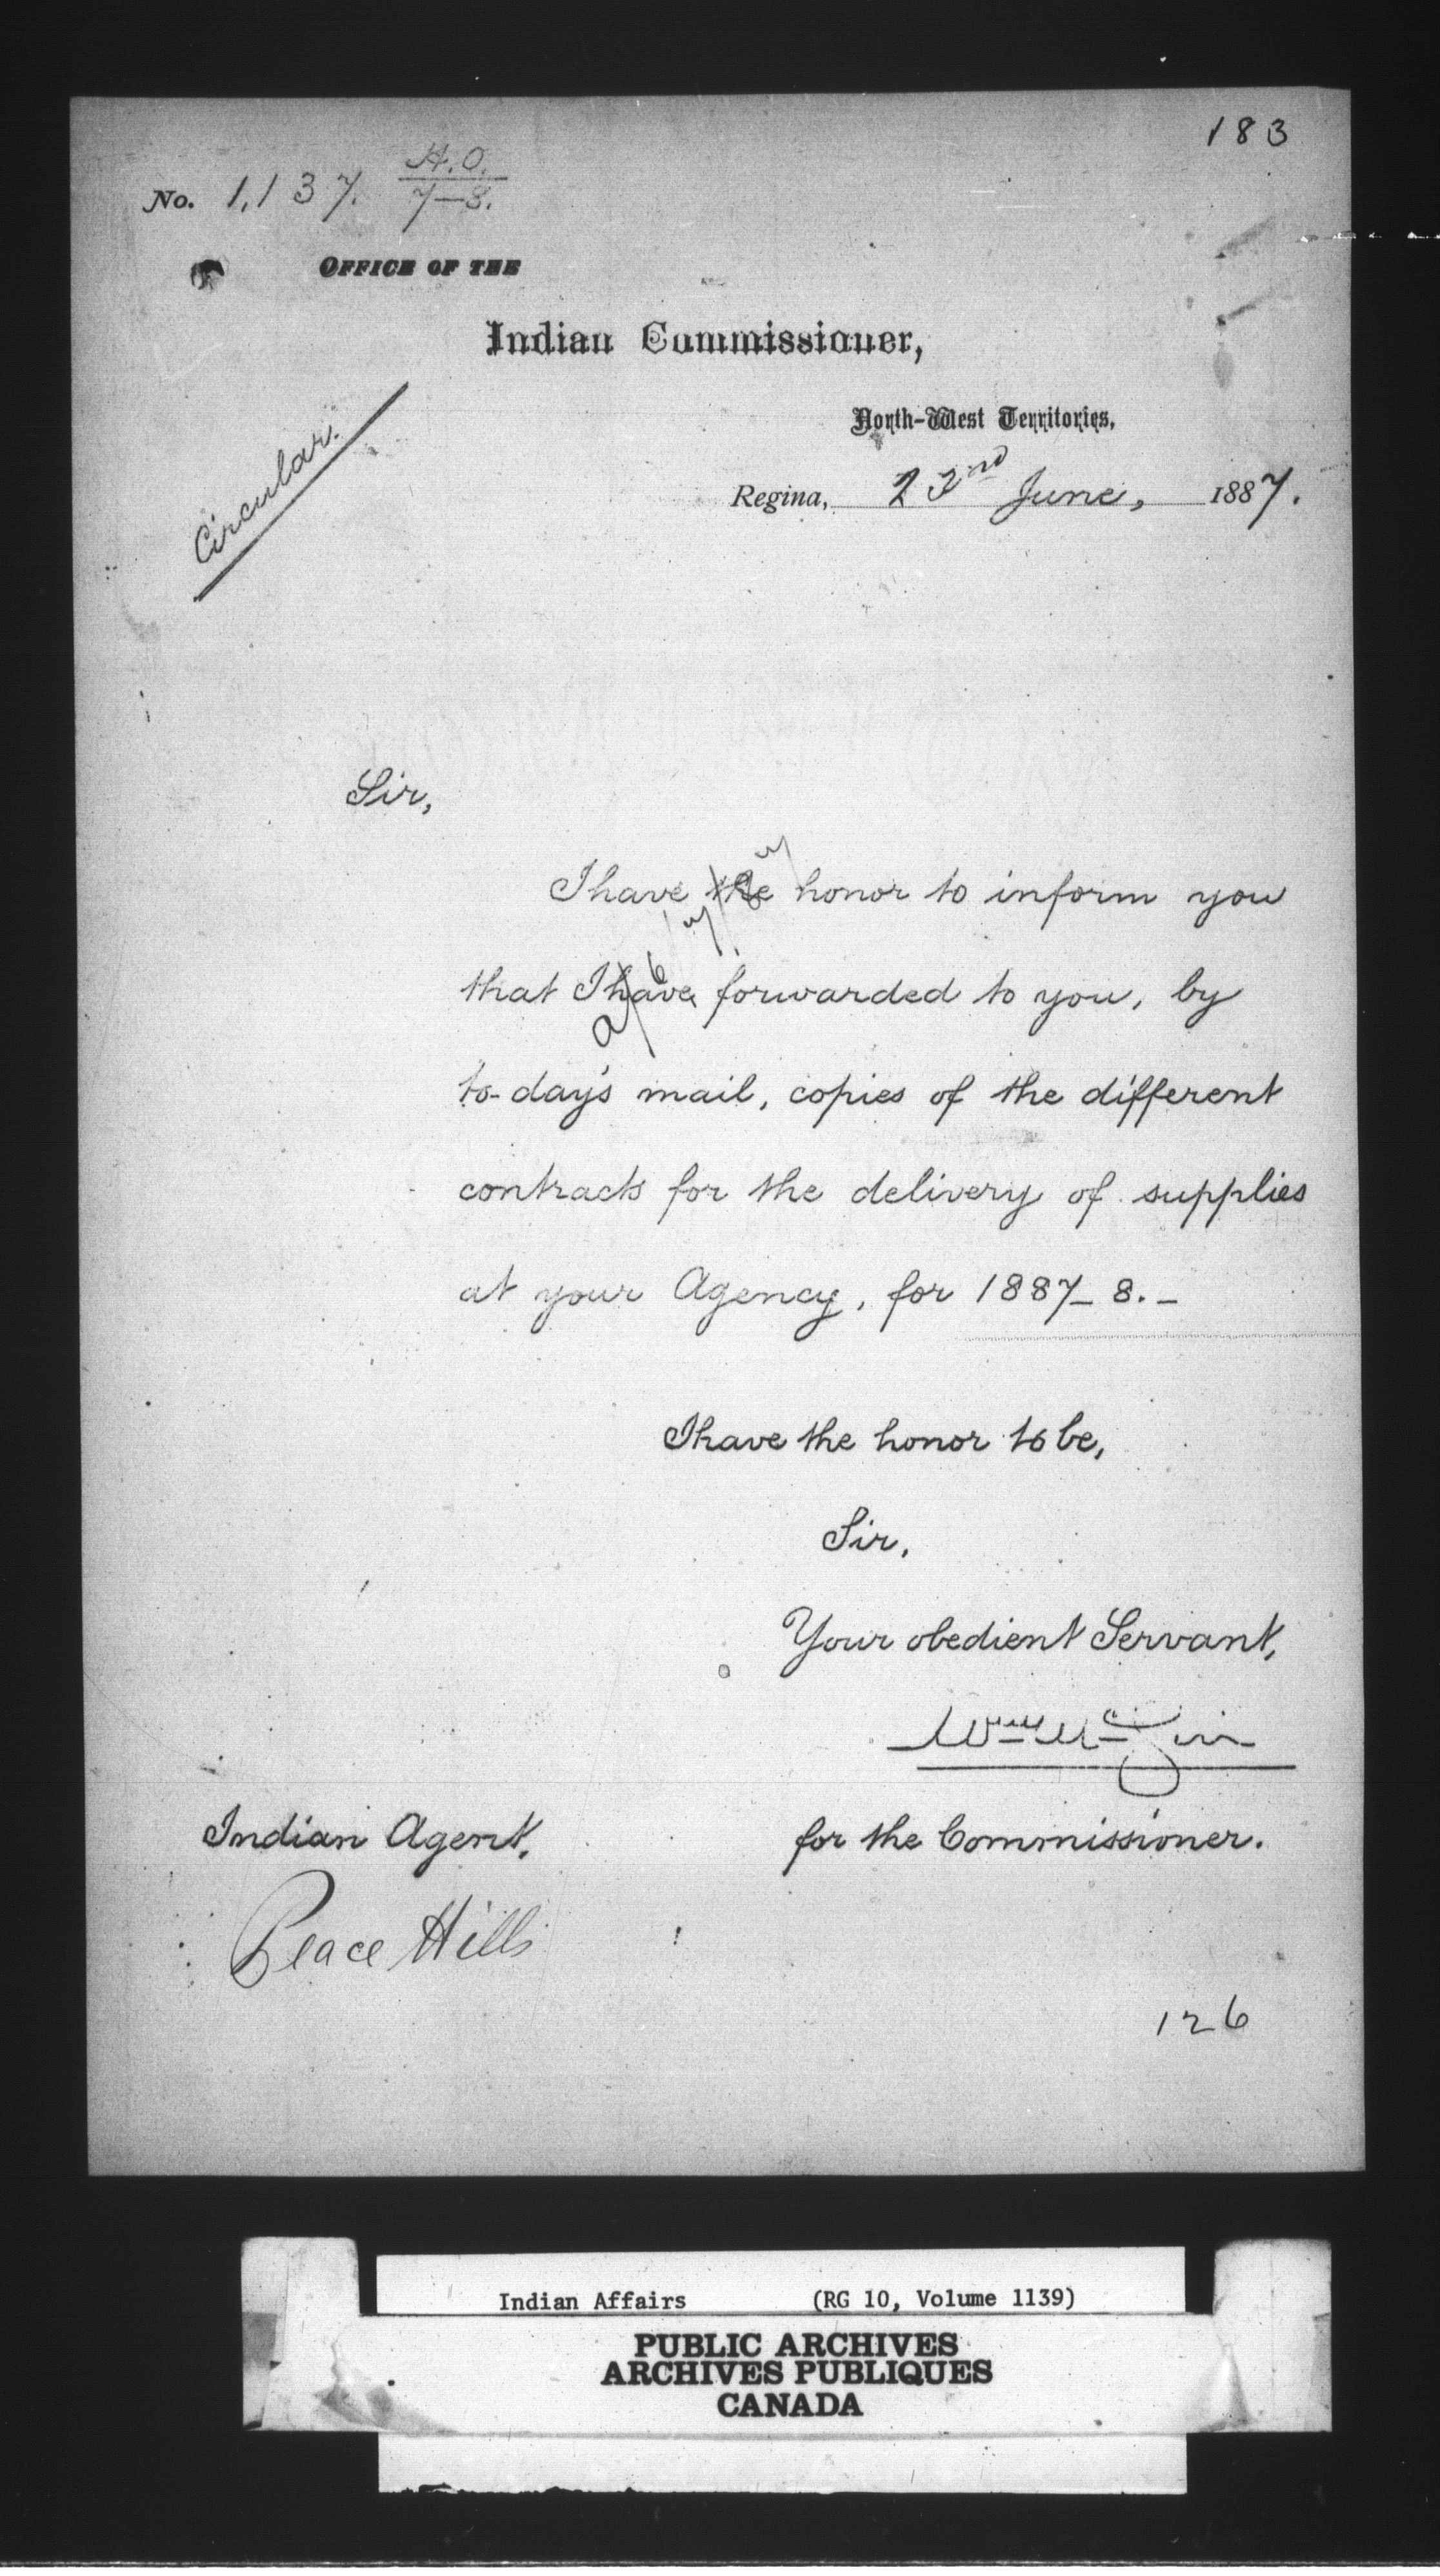 183
No. 1,137. H.O. / 7-8.
OFFICE OF THE
Indian Commissioner,
North-West Territories,
Circular.
Regina, 23rd June, 1887.
Sir,
I have the honor to inform you
that I have forwarded to you, by
to-day's mail, copies of the different
contracts for the delivery of supplies
at your Agency, for 1887-8.-
I have the honor to be,
Sir,
Your obedient Servant,
Wm McGirr
for the Commissioner.
Indian Agent,
Peace Hills
126
Indian Affairs (RG 10, Volume 1139)
PUBLIC ARCHIVES
ARCHIVES PUBLIQUES
CANADA